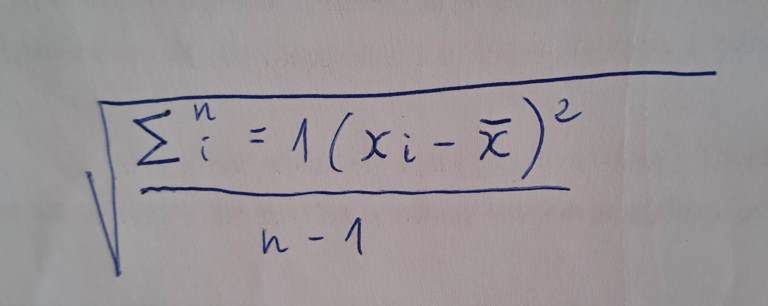 √(Σⁿᵢ = 1(xᵢ - x̄)²
n - 1)